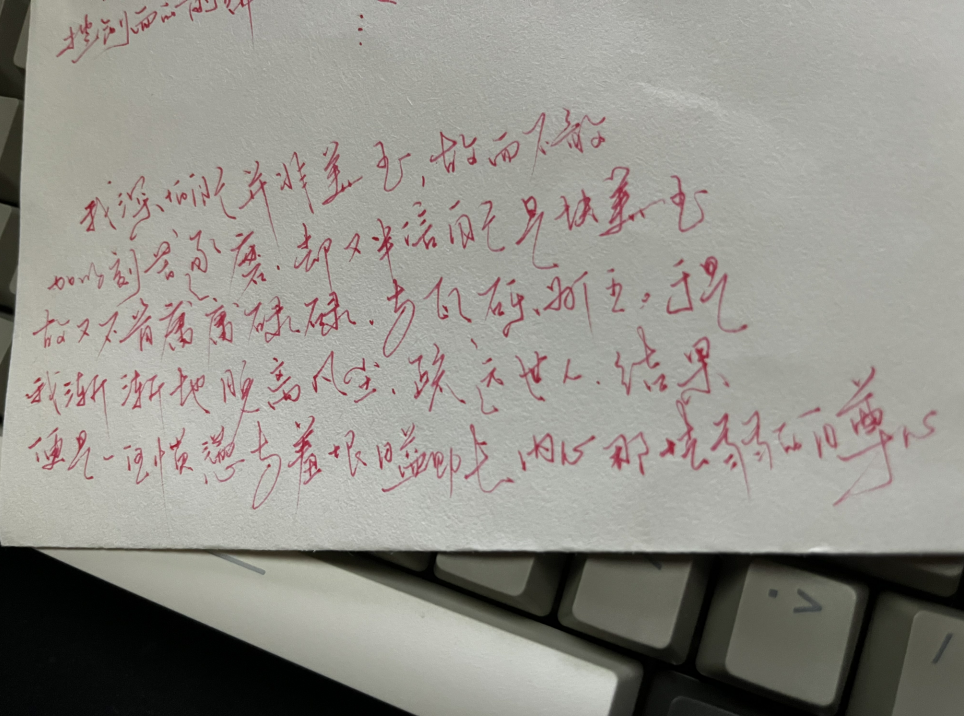 我深怕自己并非美玉，故而不敢
加以刻苦琢磨，却又半信自己是块美玉
故又不肯庸庸碌碌，与瓦砾为伍。于是
我渐渐地脱离凡尘，疏远世人，结果
便是一任愤懑与羞恨日益助长内心那怯弱的自尊心